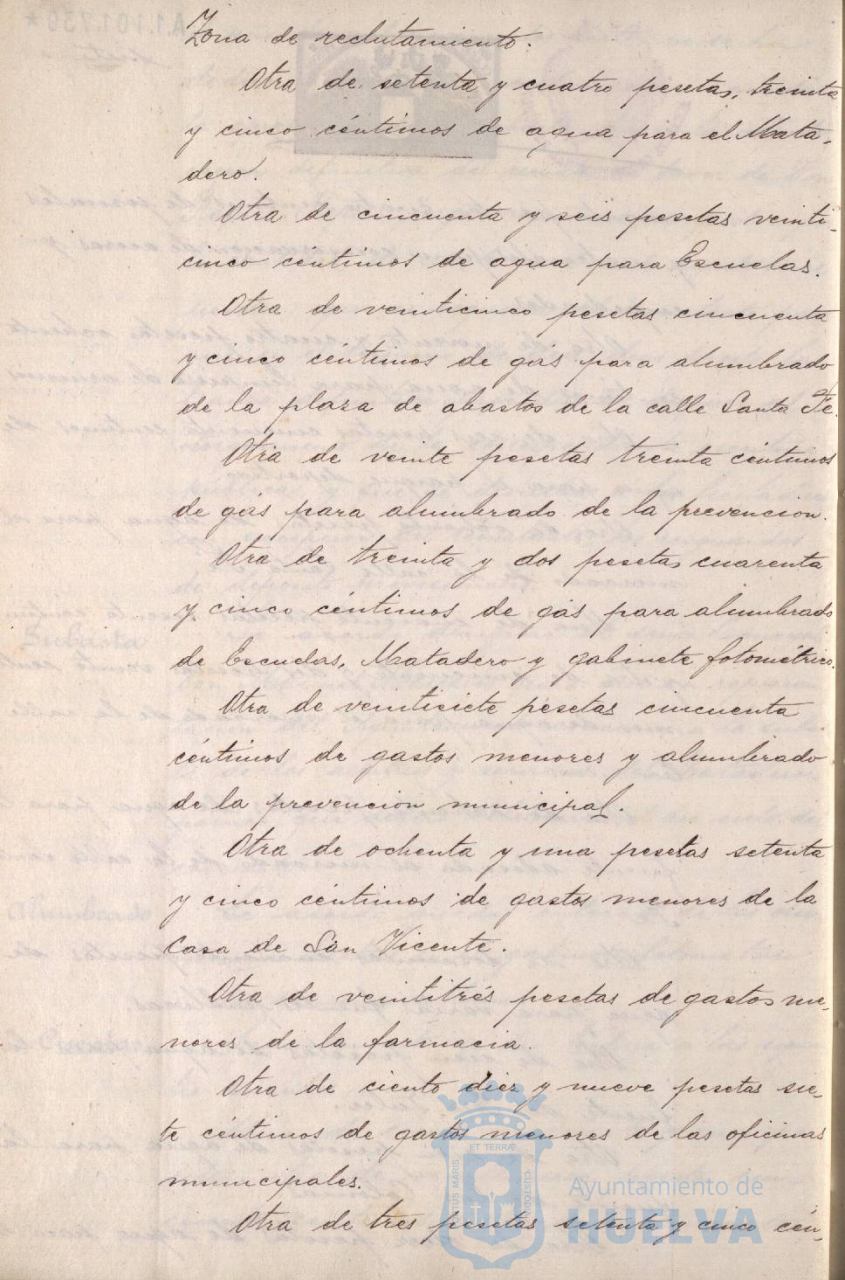 Zona de reclutamiento.
Otra de setenta y cuatro pesetas, treinta
y cinco céntimos de agua para el Mata-
dero.
Otra de cincuenta y seis pesetas veinti-
cinco céntimos de agua para Escuelas.
Otra de veinticinco pesetas cincuenta
y cinco céntimos de gás para alumbrado
de la plaza de abastos de la calle Santa Fé.
Otra de veinte pesetas treinta céntimos
de gás para alumbrado de la prevencion.
Otra de treinta y dos pesetas cuarenta
y cinco céntimos de gás para alumbrado
de Escuelas, Matadero y gabinete fotométrico.
Otra de veintisiete pesetas cincuenta
céntimos de gastos menores y alumbrado
de la prevencion municipal.
Otra de ochenta y una pesetas setenta
y cinco céntimos de gastos menores de la
Casa de San Vicente.
Otra de veintitrés pesetas de gastos me-
nores de la farmacia.
Otra de ciento diez y nueve pesetas sie-
te céntimos de gastos menores de las oficinas
municipales.
Otra de tres pesetas setenta y cinco cén-
PORTUS MARIS ET TERRÆ CUSTODIA
Ayuntamiento de
HUELVA